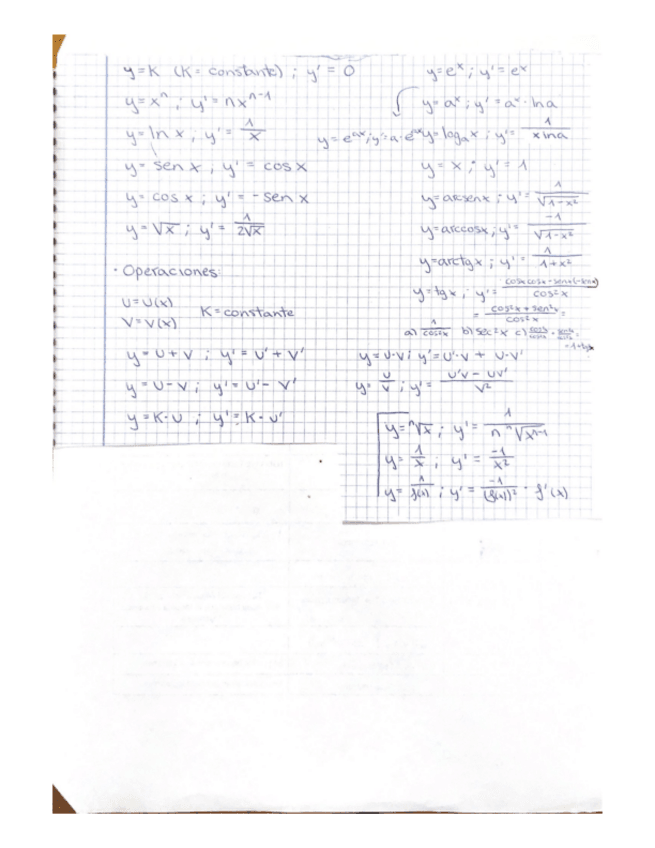 y=K (K= constante) ; y' = 0
y=xⁿ ; y' = nxⁿ⁻¹
y= ln x ; y' = 1/x
y= sen x , y' = cos x
y= cos x ; y' = - sen x
y= √x ; y' = 1/2√x
y=eˣ ; y' = eˣ
y= aˣ ; y' = aˣ · ln a
y=eᵃˣ ; y'=a·eᵃˣ
y=logₐx ; y' = 1/x lna
y = x ; y' = 1
y=arcsenx ; y' = 1/√1-x²
y=arccosx ; y' = -1/√1-x²
y=arctgx ; y' = 1/1+x²
y=tgx ; y' = cosx cosx - senx(-senx)/cos²x
= cos²x + sen²x/cos²x =
a) 1/cos²x b) sec²x c) cos²x/cos²x + sen²x/cos²x =
= 1+tg²x
· Operaciones:
U=U(x)
V=V(x)
K=constante
y= U+V ; y' = U' + V'
y= U-V ; y' = U' - V'
y= K·U ; y' = K·U'
y=U·V ; y'=U'·V + U·V'
y= U/V ; y' = U'V - UV'/V²
y=ⁿ√x ; y' = 1/n ⁿ√xⁿ⁻¹
y= 1/x ; y' = -1/x²
y= 1/f(x) ; y' = -1/(f(x))² · f'(x)